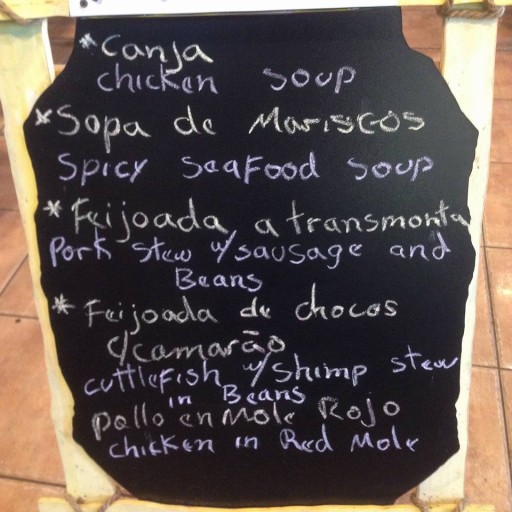 *Canja
chicken soup
*Sopa de Mariscos
Spicy Seafood Soup
*Feijoada a transmonta
Pork stew w/sausage and
Beans
*Feijoada de chocos
c/camarão
cuttlefish w/shimp stew
in Beans
pollo en Mole Rojo
chicken in Red Mole